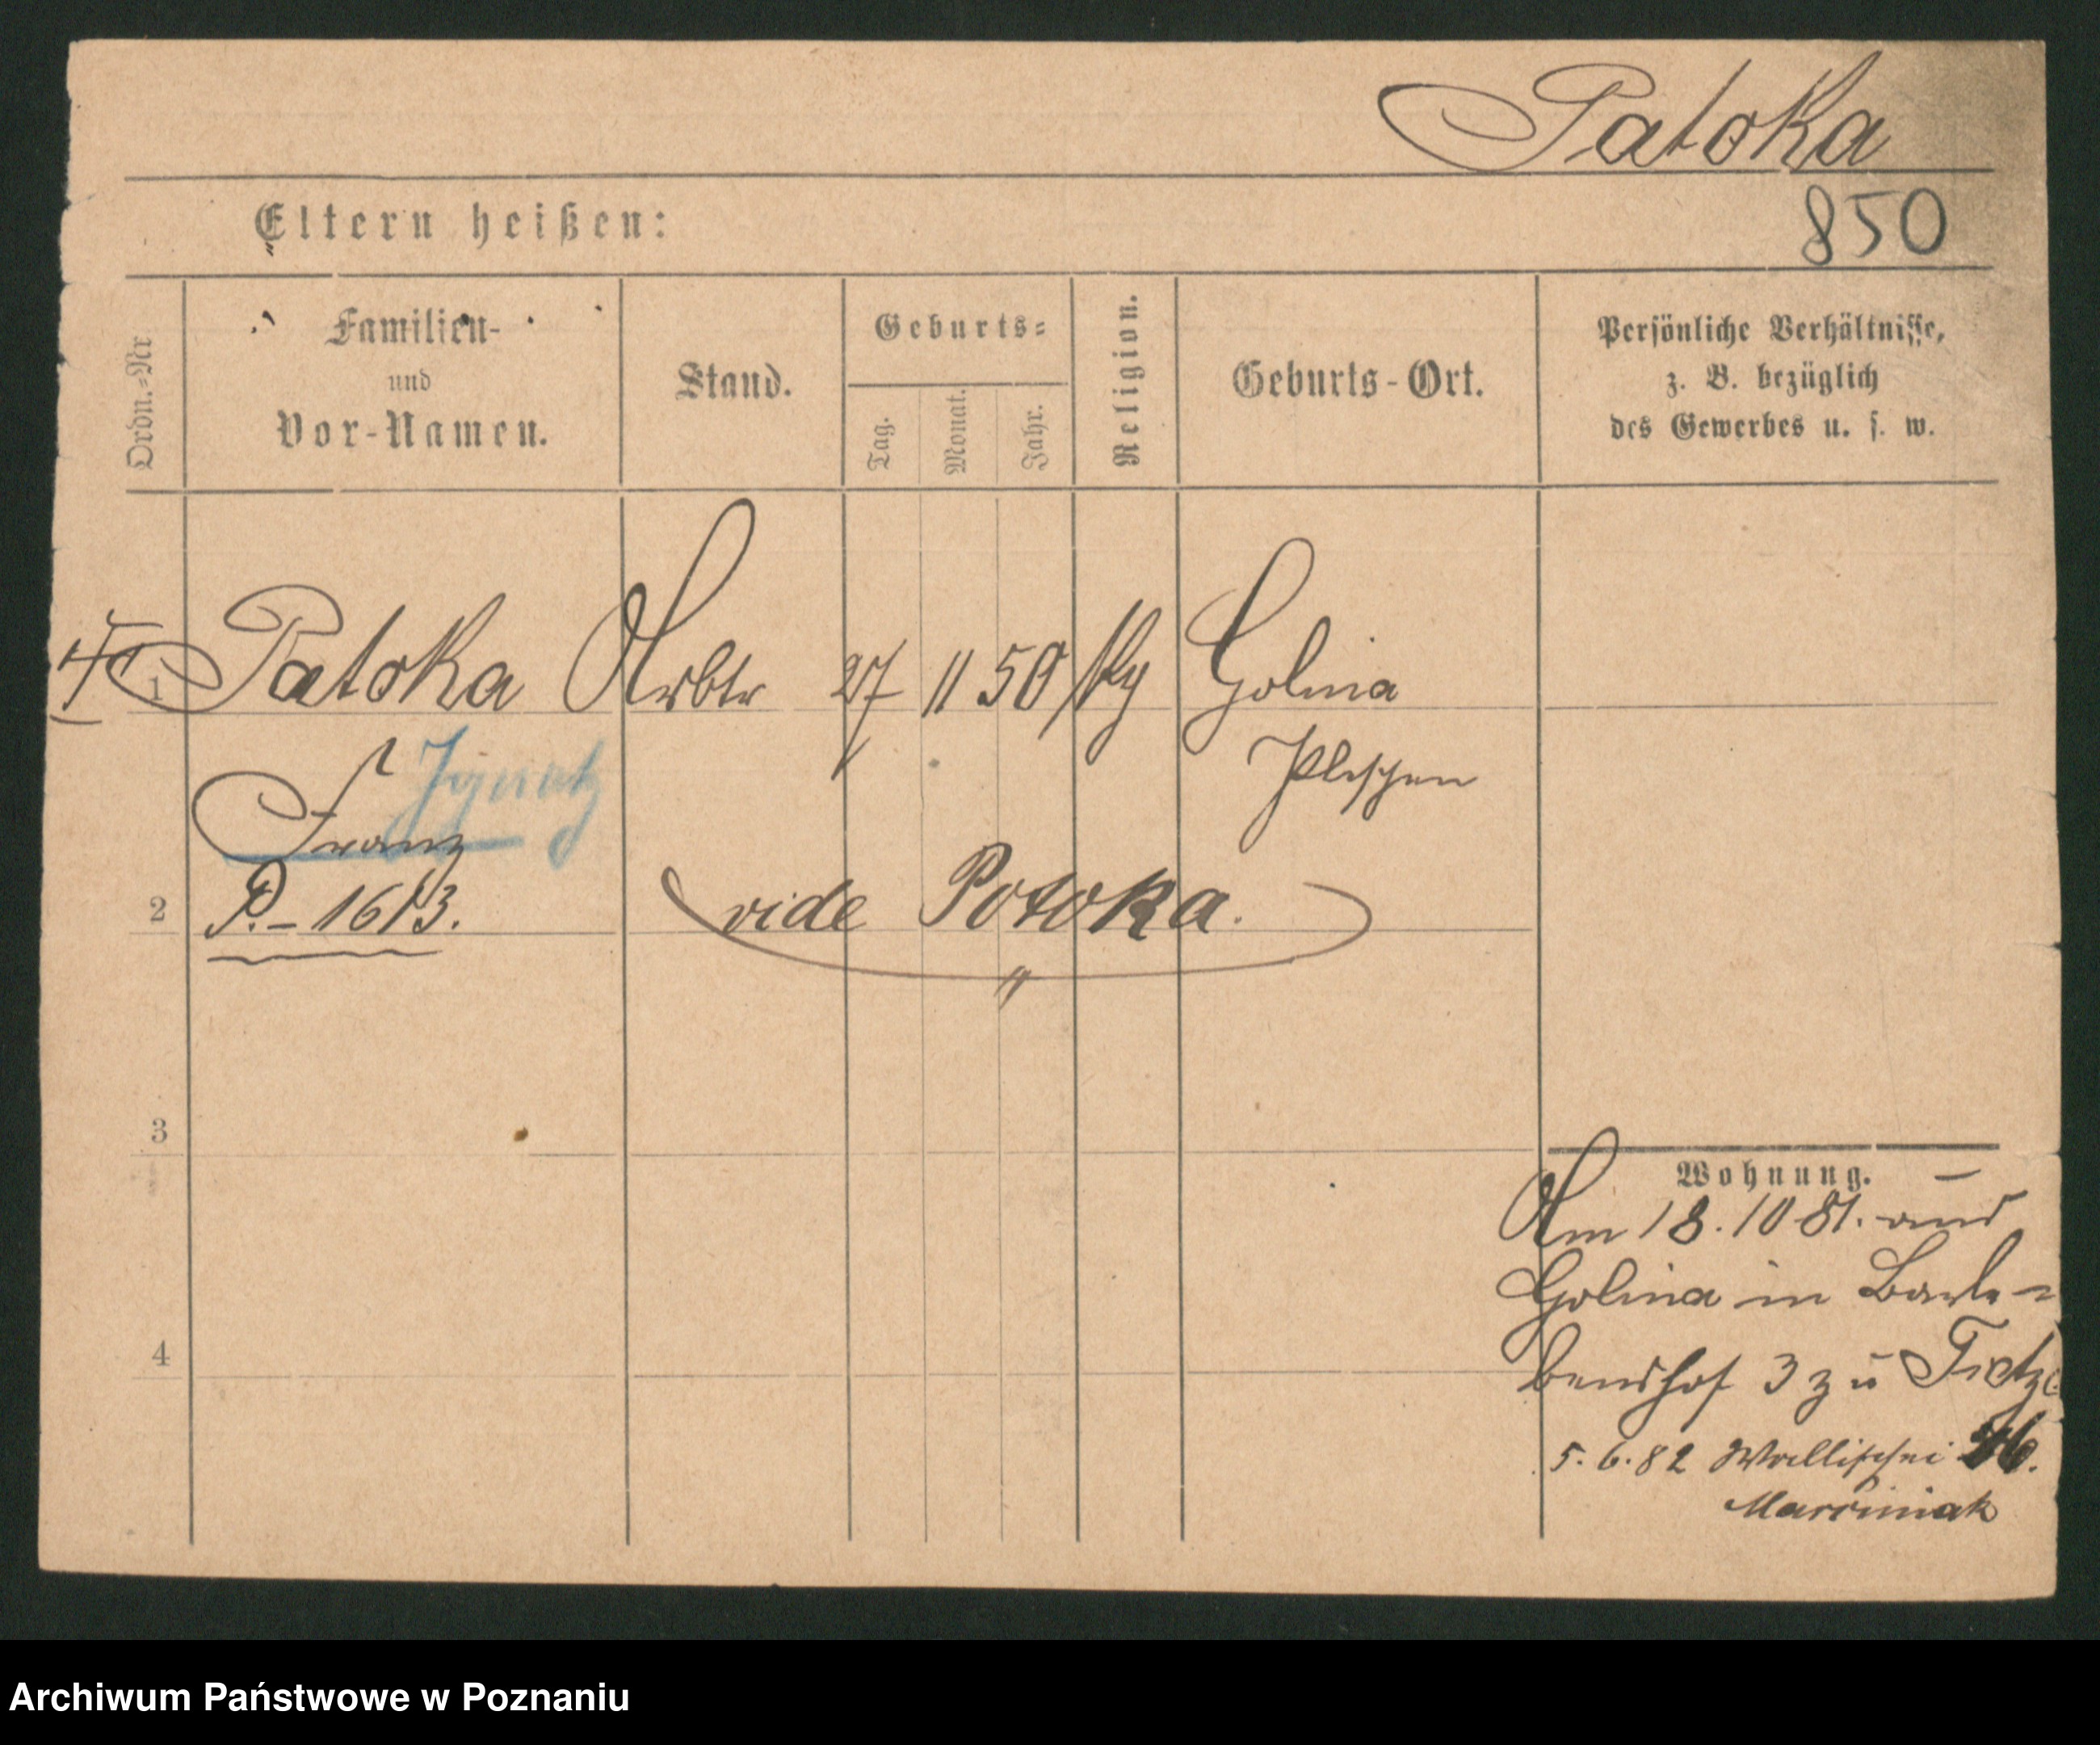 Patoka
850
Eltern heißen:
Ordn.-Nr
Familien-
und
Vor-Namen.
Stand.
Geburts-
Tag.
Monat.
Jahr.
Religion.
Geburts-Ort.
Persönliche Verhältnisse,
z. B. bezüglich
des Gewerbes u. s. w.
1 Patoka Arbtr 27 11 50 Golina
Ignatz Pleschen
Franz
2 P.- 1613. vide Potoka.
3
Wohnung.
Am 18. 10 81. aus
Golina in Barle-
4
benshof 3 z u
5. 6. 82 Wallischei
Marciniak
Archiwum Państwowe w Poznaniu